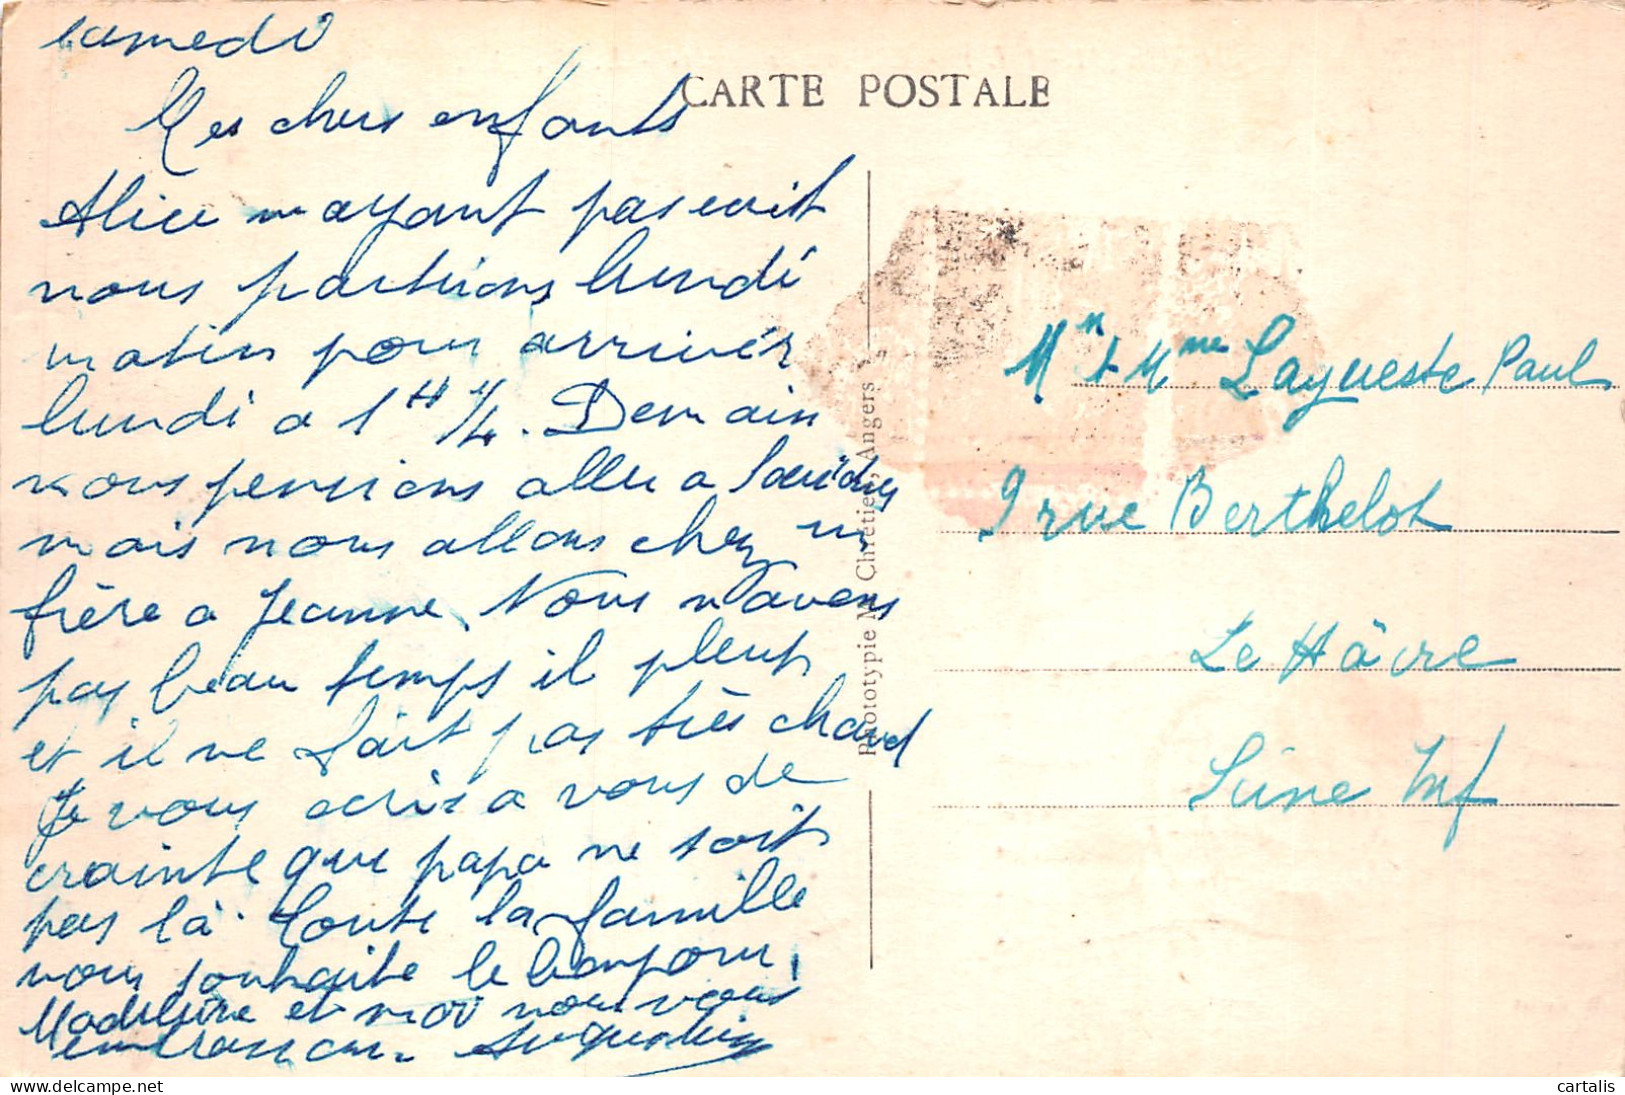 samedi
Mes chers enfants
Alice n'ayant pas ecrit
nous partirons lundi
matin pour arriver
lundi a 1 H 1/4. Demain
nous pensions aller a
mais nous allons chez
frère a Jeanne. Nous n'avons
pas beau temps il pleut
et il ne fait pas très chaud
Je vous ecris a vous de
crainte que papa ne soit
pas là. Toute la famille
vous souhaite le bonjour,
Madeleine et moi nous vous
embrassons.
CARTE POSTALE
Phototypie M. Chrétien, Angers
Mr et Mme Layueste Paul
9 rue Berthelot
Le Hâvre
Seine Inf
delcampe.net
cartalis